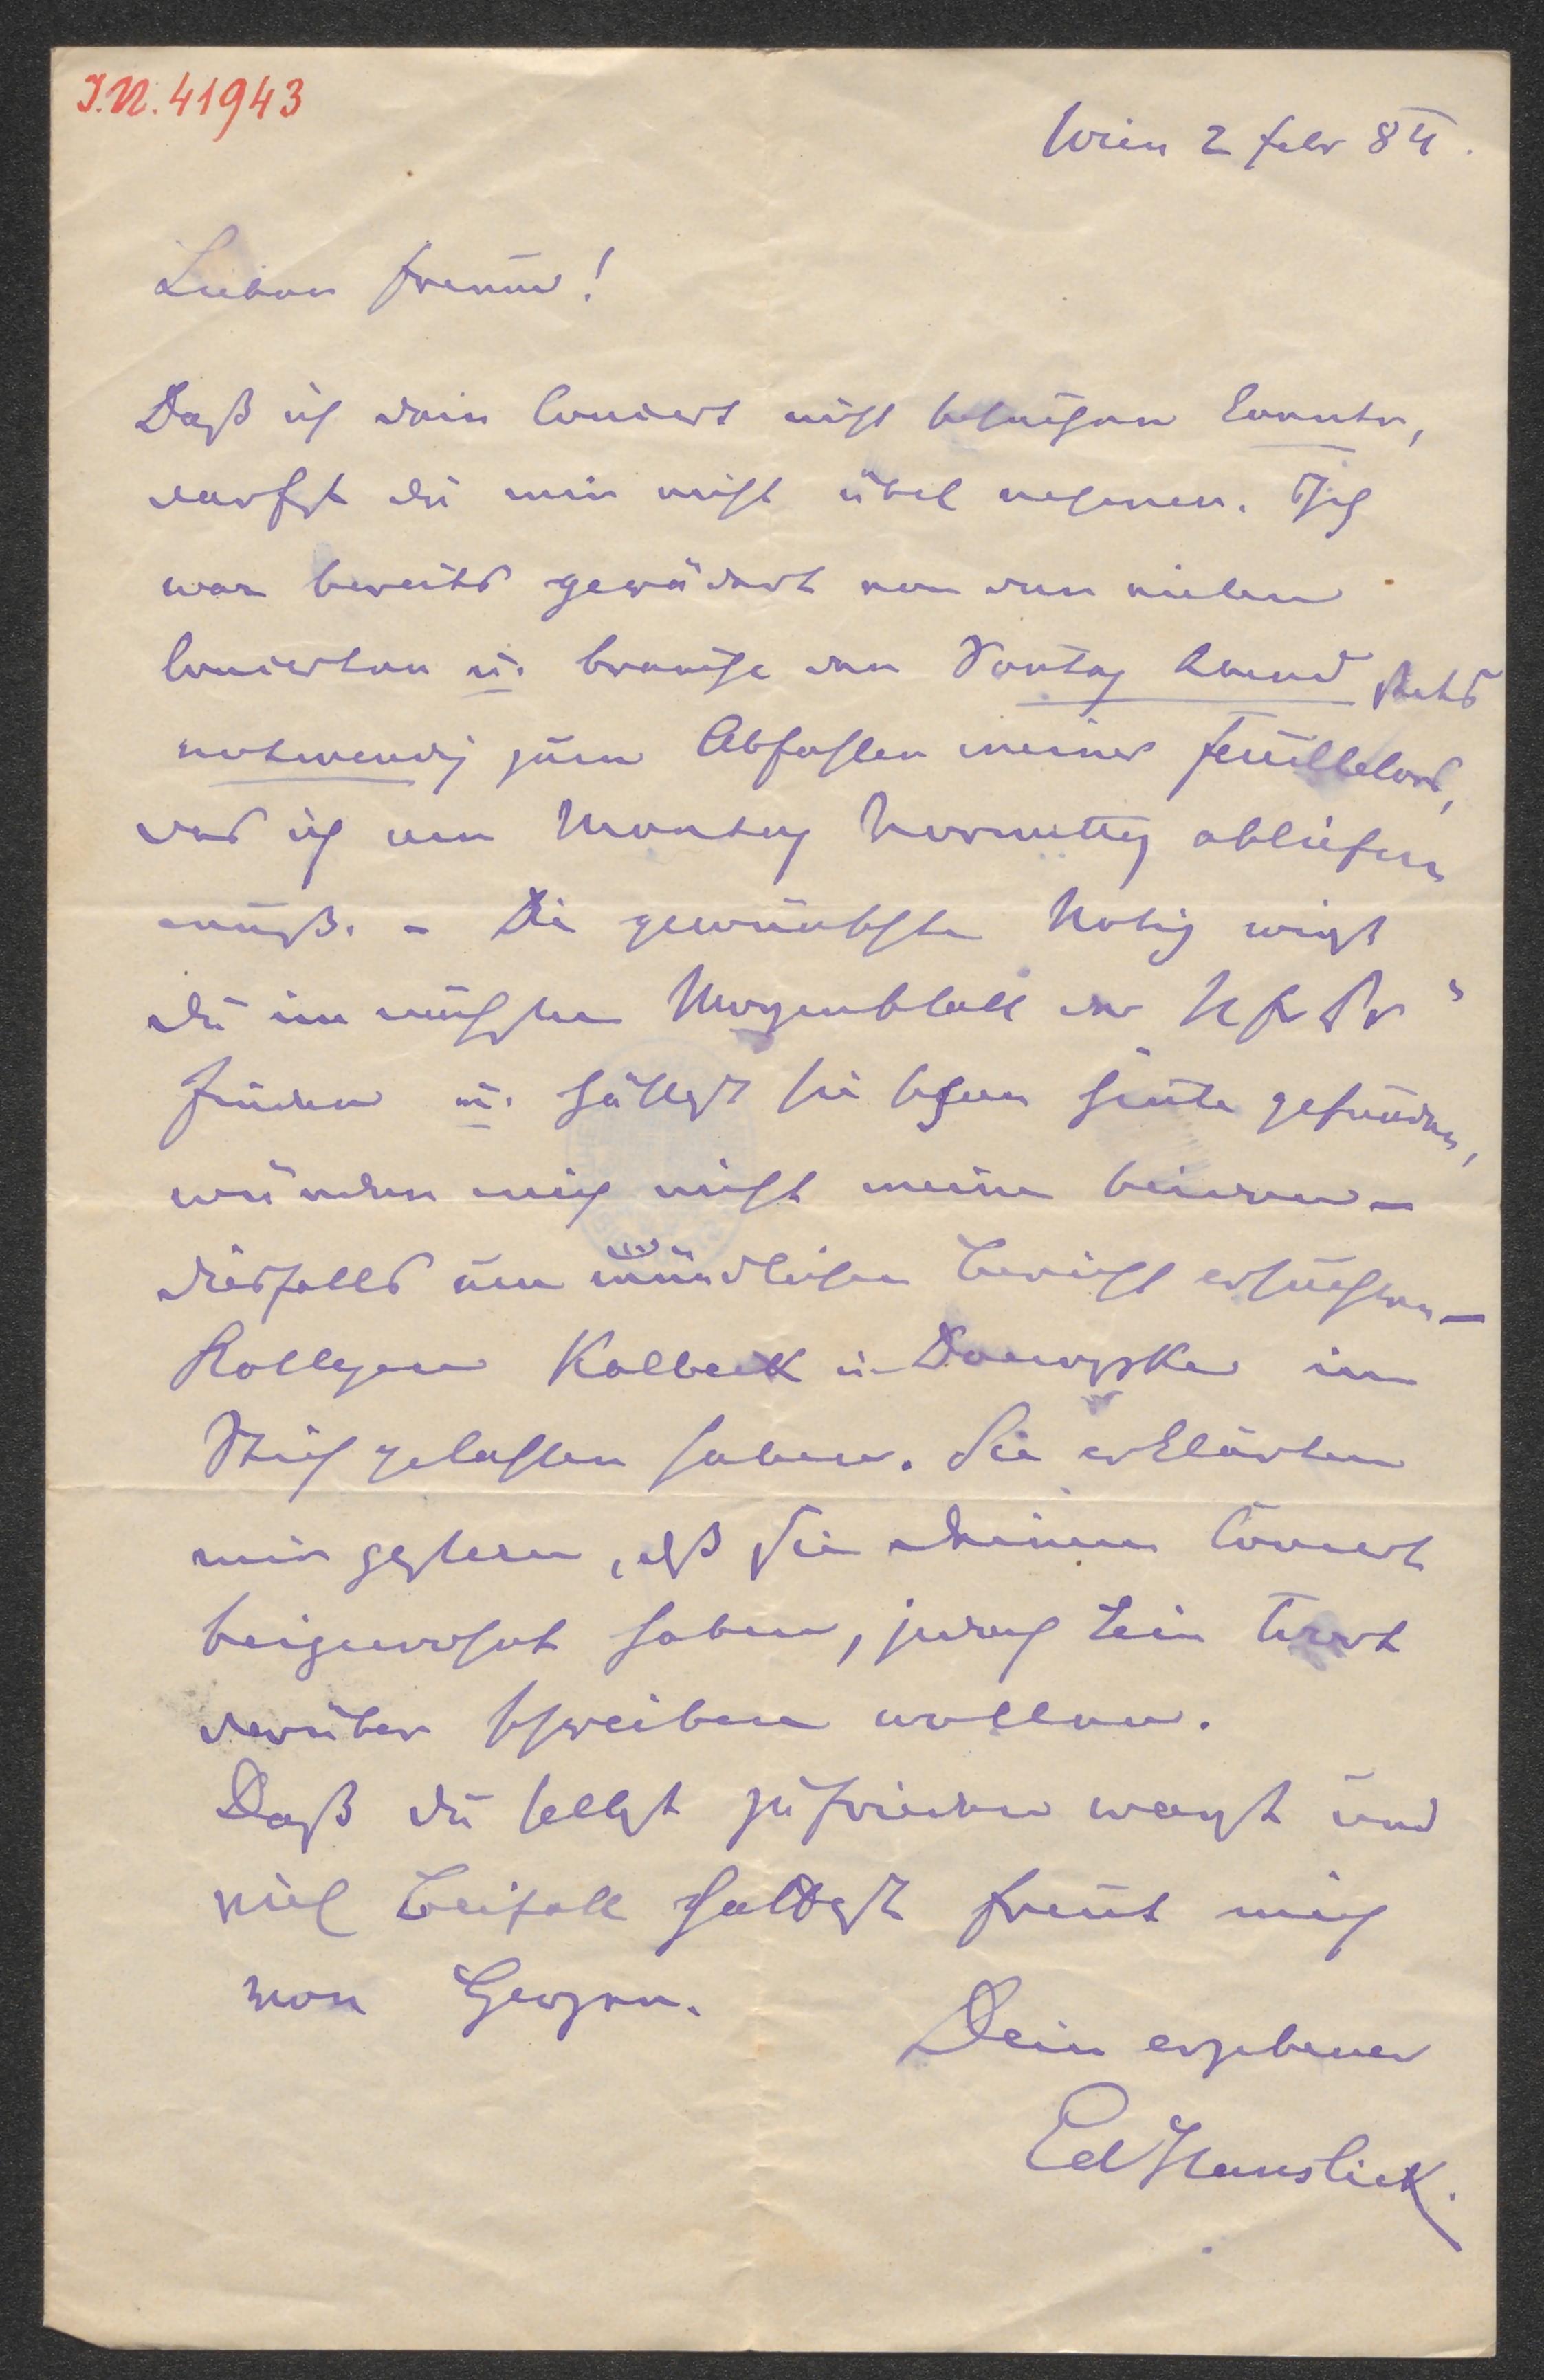 I.N. 41943
Wien 2 Febr 84.
Lieber Freund!
Daß ich dein Concert nicht besuchen konnte,
darfst du mir nicht übel nehmen. Ich
war bereits gerädert von den vielen
Concerten u. brauche den Sontag Abend stets
notwendig zum Abfassen meines Feuilletons,
das ich am Montag Vormittag abliefern
muß. – Die gewünschte Notiz wirst
du im nächsten Morgenblatt der N fr Pr
finden u. hättest sie schon heute gefunden,
würden mich nicht meine beiden –
diesfalls um mündlichen Bericht ersuchten –
Kollegen Kalbeck u. Dömpke im
Stich gelassen haben. Sie erklärten
mir gestern, daß sie deinem Concert
beigewohnt haben, jedoch kein Wort
darüber schreiben wollen.
Daß du selbst zufrieden warst und
viel Beifall hattest freut mich
von Herzen.
Dein ergebener
Ed Hanslick.